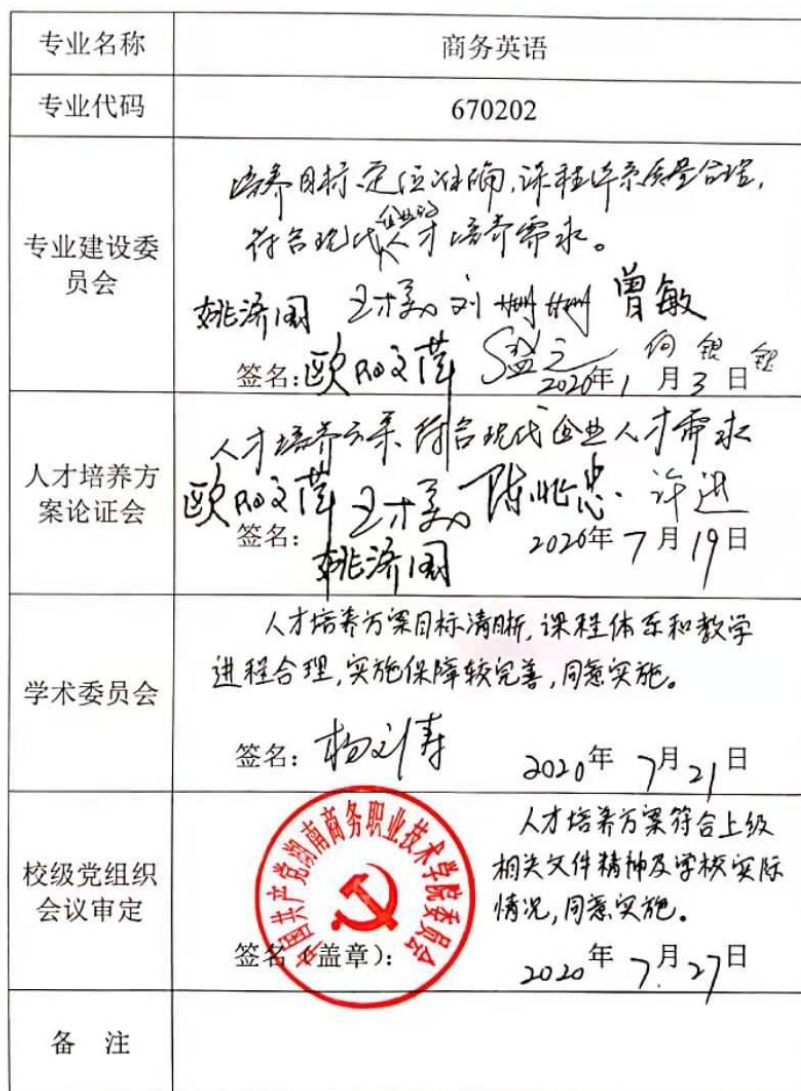 专业名称 商务英语
专业代码 670202
专业建设委员会
培养目标定位准确,课程体系质量合理,
符合现代企业的人才培养需求。
姚济国 王才美 刘姗姗 曾敏
签名:欧阳文萍 何银银
2020年1月3日
人才培养方案论证会
人才培养方案符合现代企业人才需求
欧阳文萍 王才美 许进
签名: 2020年7月19日
姚济国
学术委员会
人才培养方案目标清晰,课程体系和教学
进程合理,实施保障较完善,同意实施。
签名: 杨刘寿 2020年7月21日
校级党组织会议审定
人才培养方案符合上级
相关文件精神及学校实际
情况,同意实施。
中国共产党湖南商务职业技术学院委员会
签名(盖章): 2020年7月27日
备 注